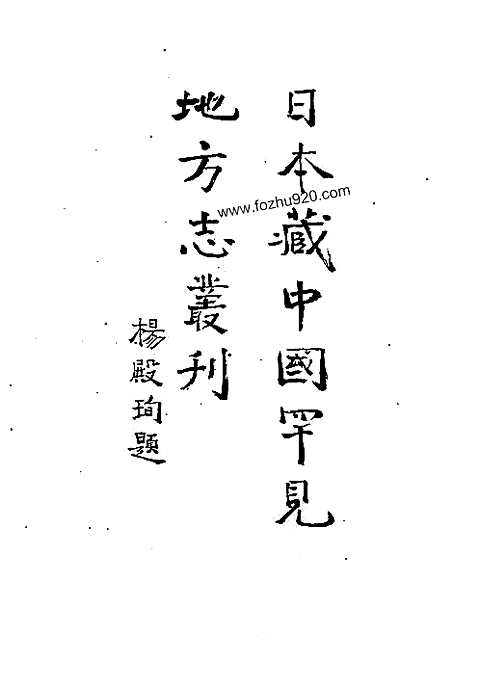 日本藏中國罕見
地方志叢刊
楊殿珣題
www.fozhu920.com